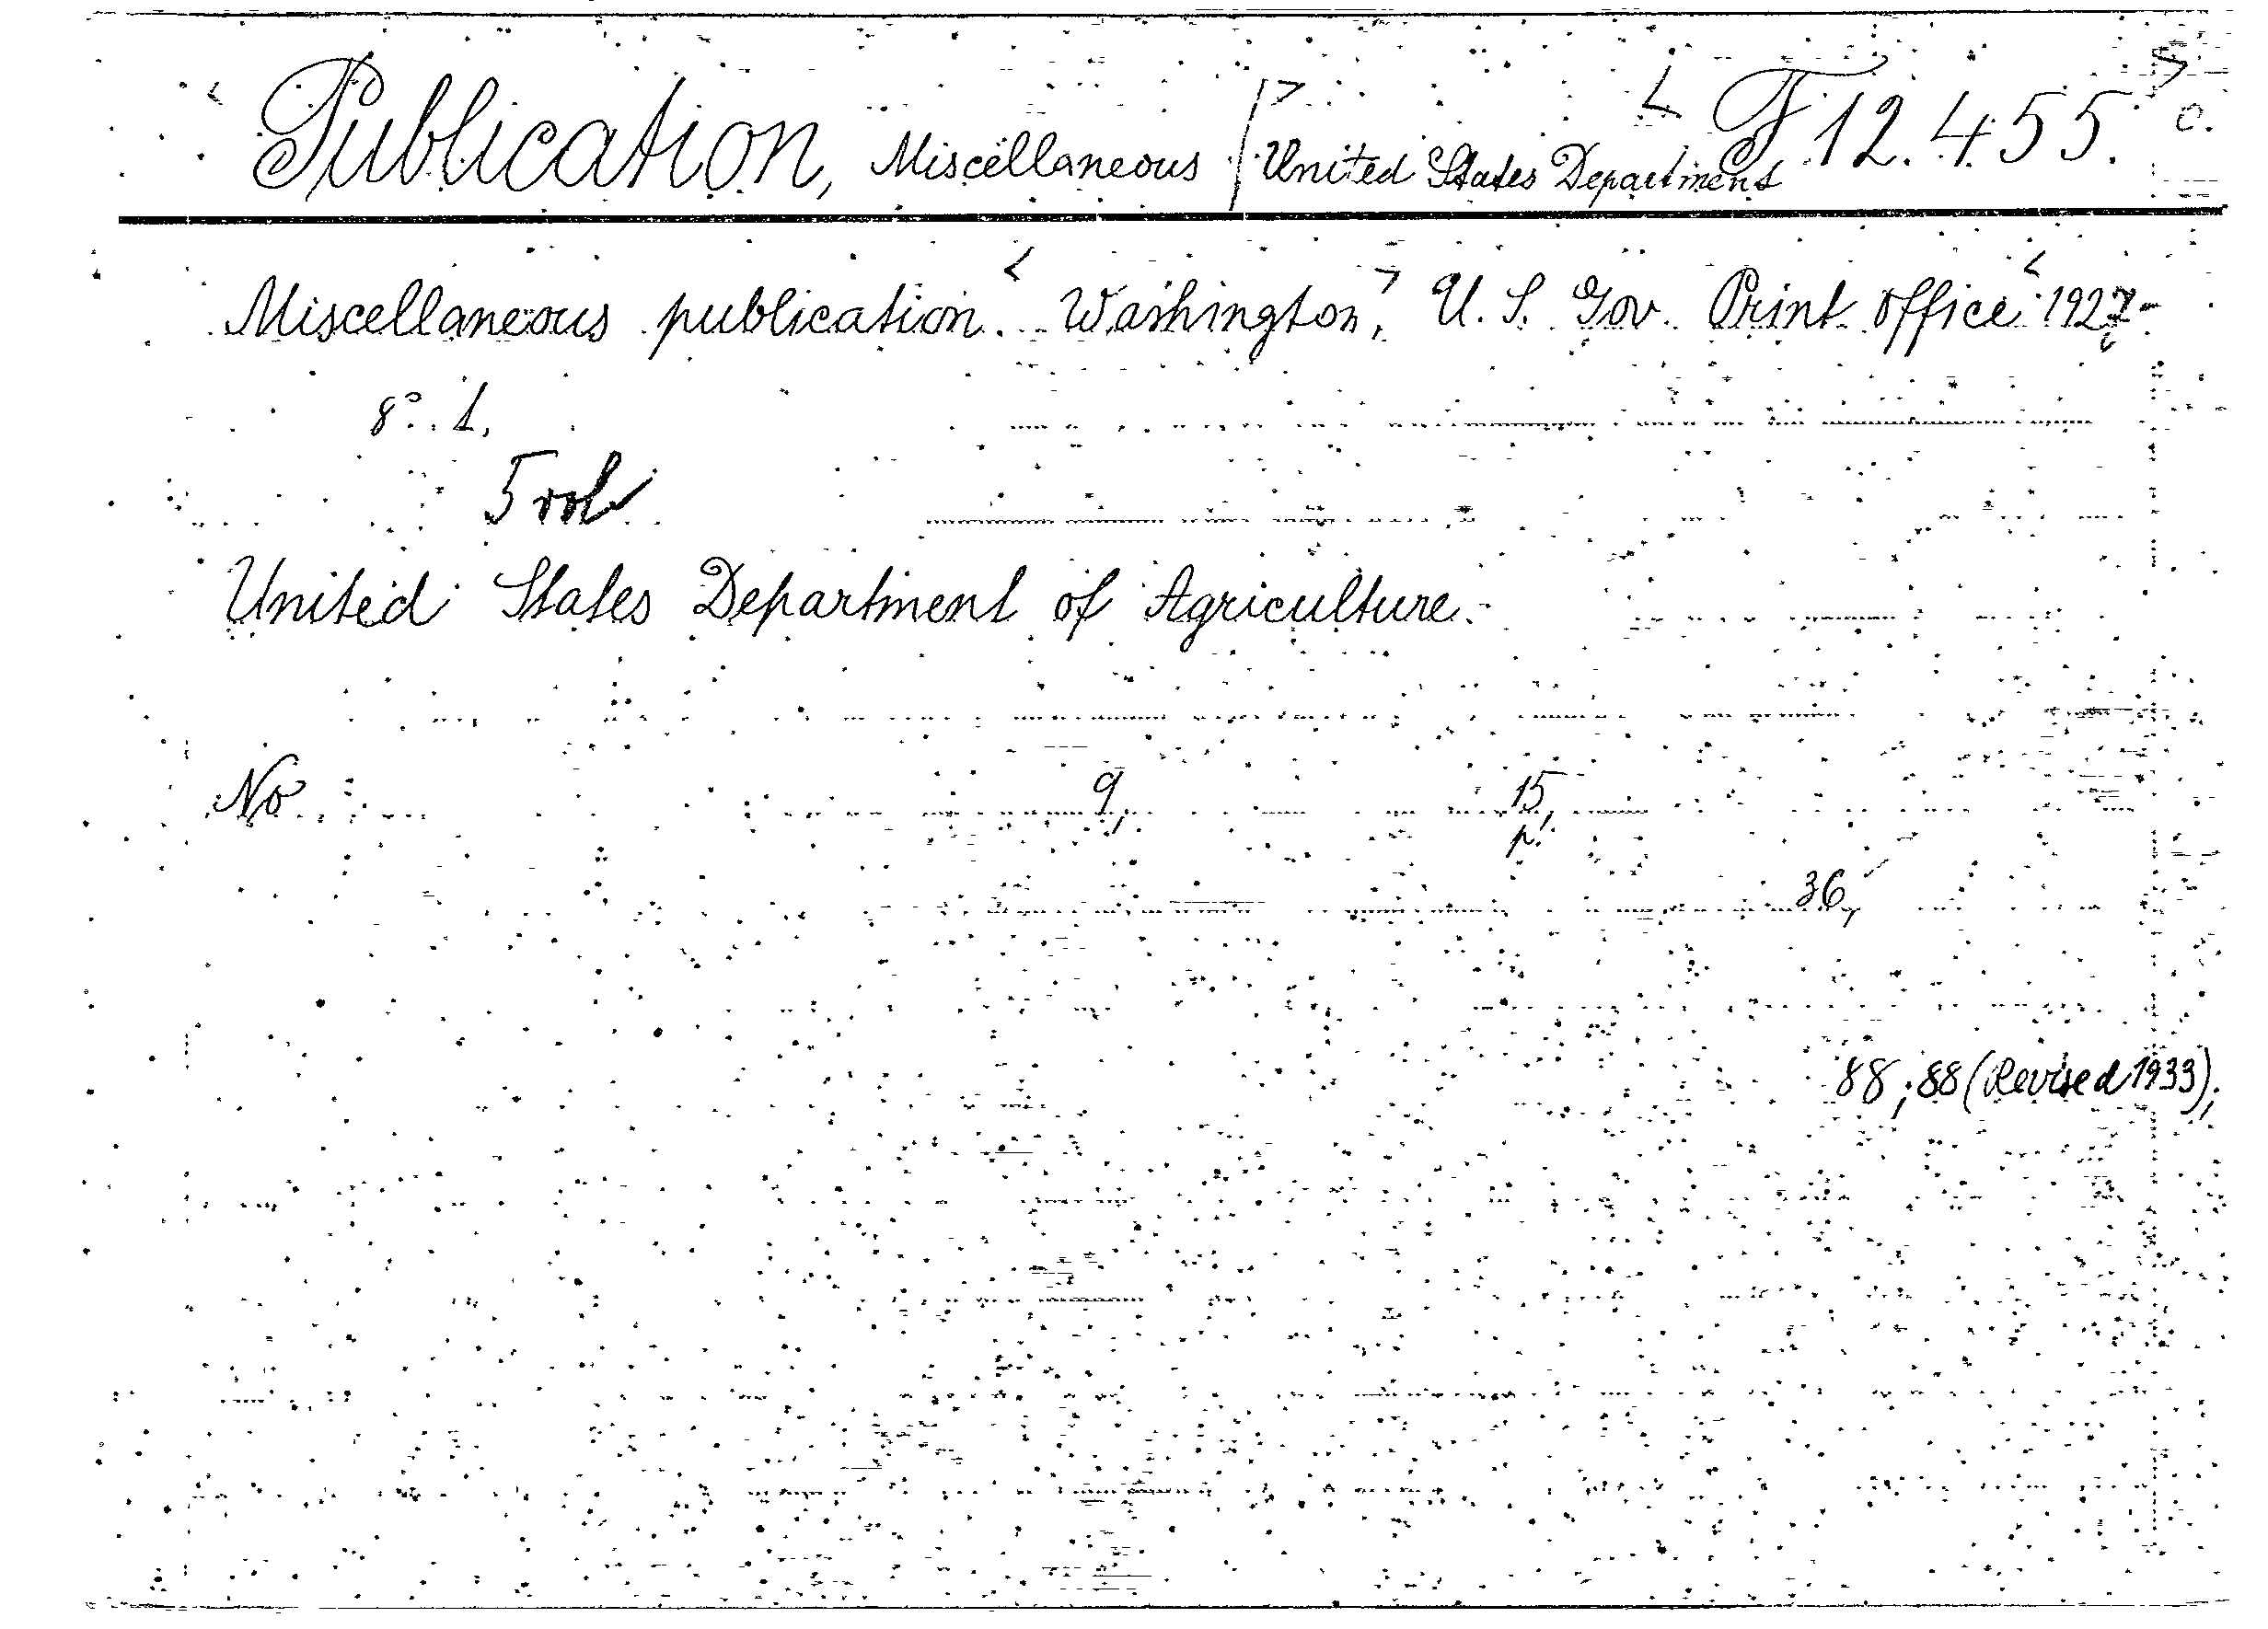 < Publication, Miscellaneous / > United States Department < F 12.455. > c.
Miscellaneous publication. < Washington, > U. S. Gov. Print. office < 1927-
8°. t.
5 vol
United States Department of Agriculture.
No 9, 15,
p.
36,
88; 88 (Revised 1933);